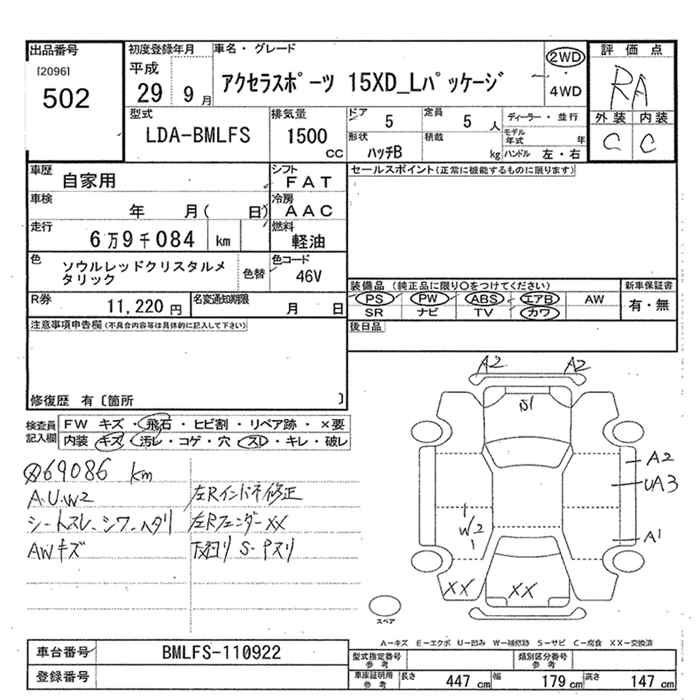 出品番号
[2096]
502
初度登録年月
平成
29 9 月
車名・グレード
アクセラスポーツ 15XD_Lパッケージ
2WD
4WD
評価点
RA
外装 内装
C C
型式
LDA-BMLFS
排気量
1500
CC
ドア 5
定員 5 人
形状
ハッチB
積載
kg
ディーラー・並行
モデル年式 年
ハンドル 左・右
車歴 自家用
シフト FAT
車検 年 月( 日)
冷房 AAC
走行 6万9千084 km
燃料 軽油
色 ソウルレッドクリスタルメタリック
色替
色コード 46V
R券 11,220 円
名変通知期限 月 日
セールスポイント(正常に機能するものに限ります)
装備品 (純正品に限り○をつけてください)
新車保証書
PS PW ABS エアB AW
有・無
SR ナビ TV カワ
後日品
注意事項申告欄(不具合内容等は具体的に記入して下さい)
修復歴 有〔箇所 〕
検査員記入欄
FW キズ・飛石・ヒビ割・リペア跡・×要
内装 キズ・汚レ・コゲ・穴・スレ・キレ・破レ
69086 km
A.U.W2
シートスレ、シワ、ヘタリ
AWキズ
左Rインドネ修正
左RフェンダーXX
下回リ S・Pスリ
A2 A2
A2
UA3
A1
W2
XX XX
スペア
A-キズ E-エクボ U-凹み W-補修跡 S-サビ C-腐食 XX-交換済
車台番号 BMLFS-110922
登録番号
型式指定番号
参考
類別区分番号
参考
車庫証明用
参考
長さ 447 cm 幅 179 cm 高さ 147 cm